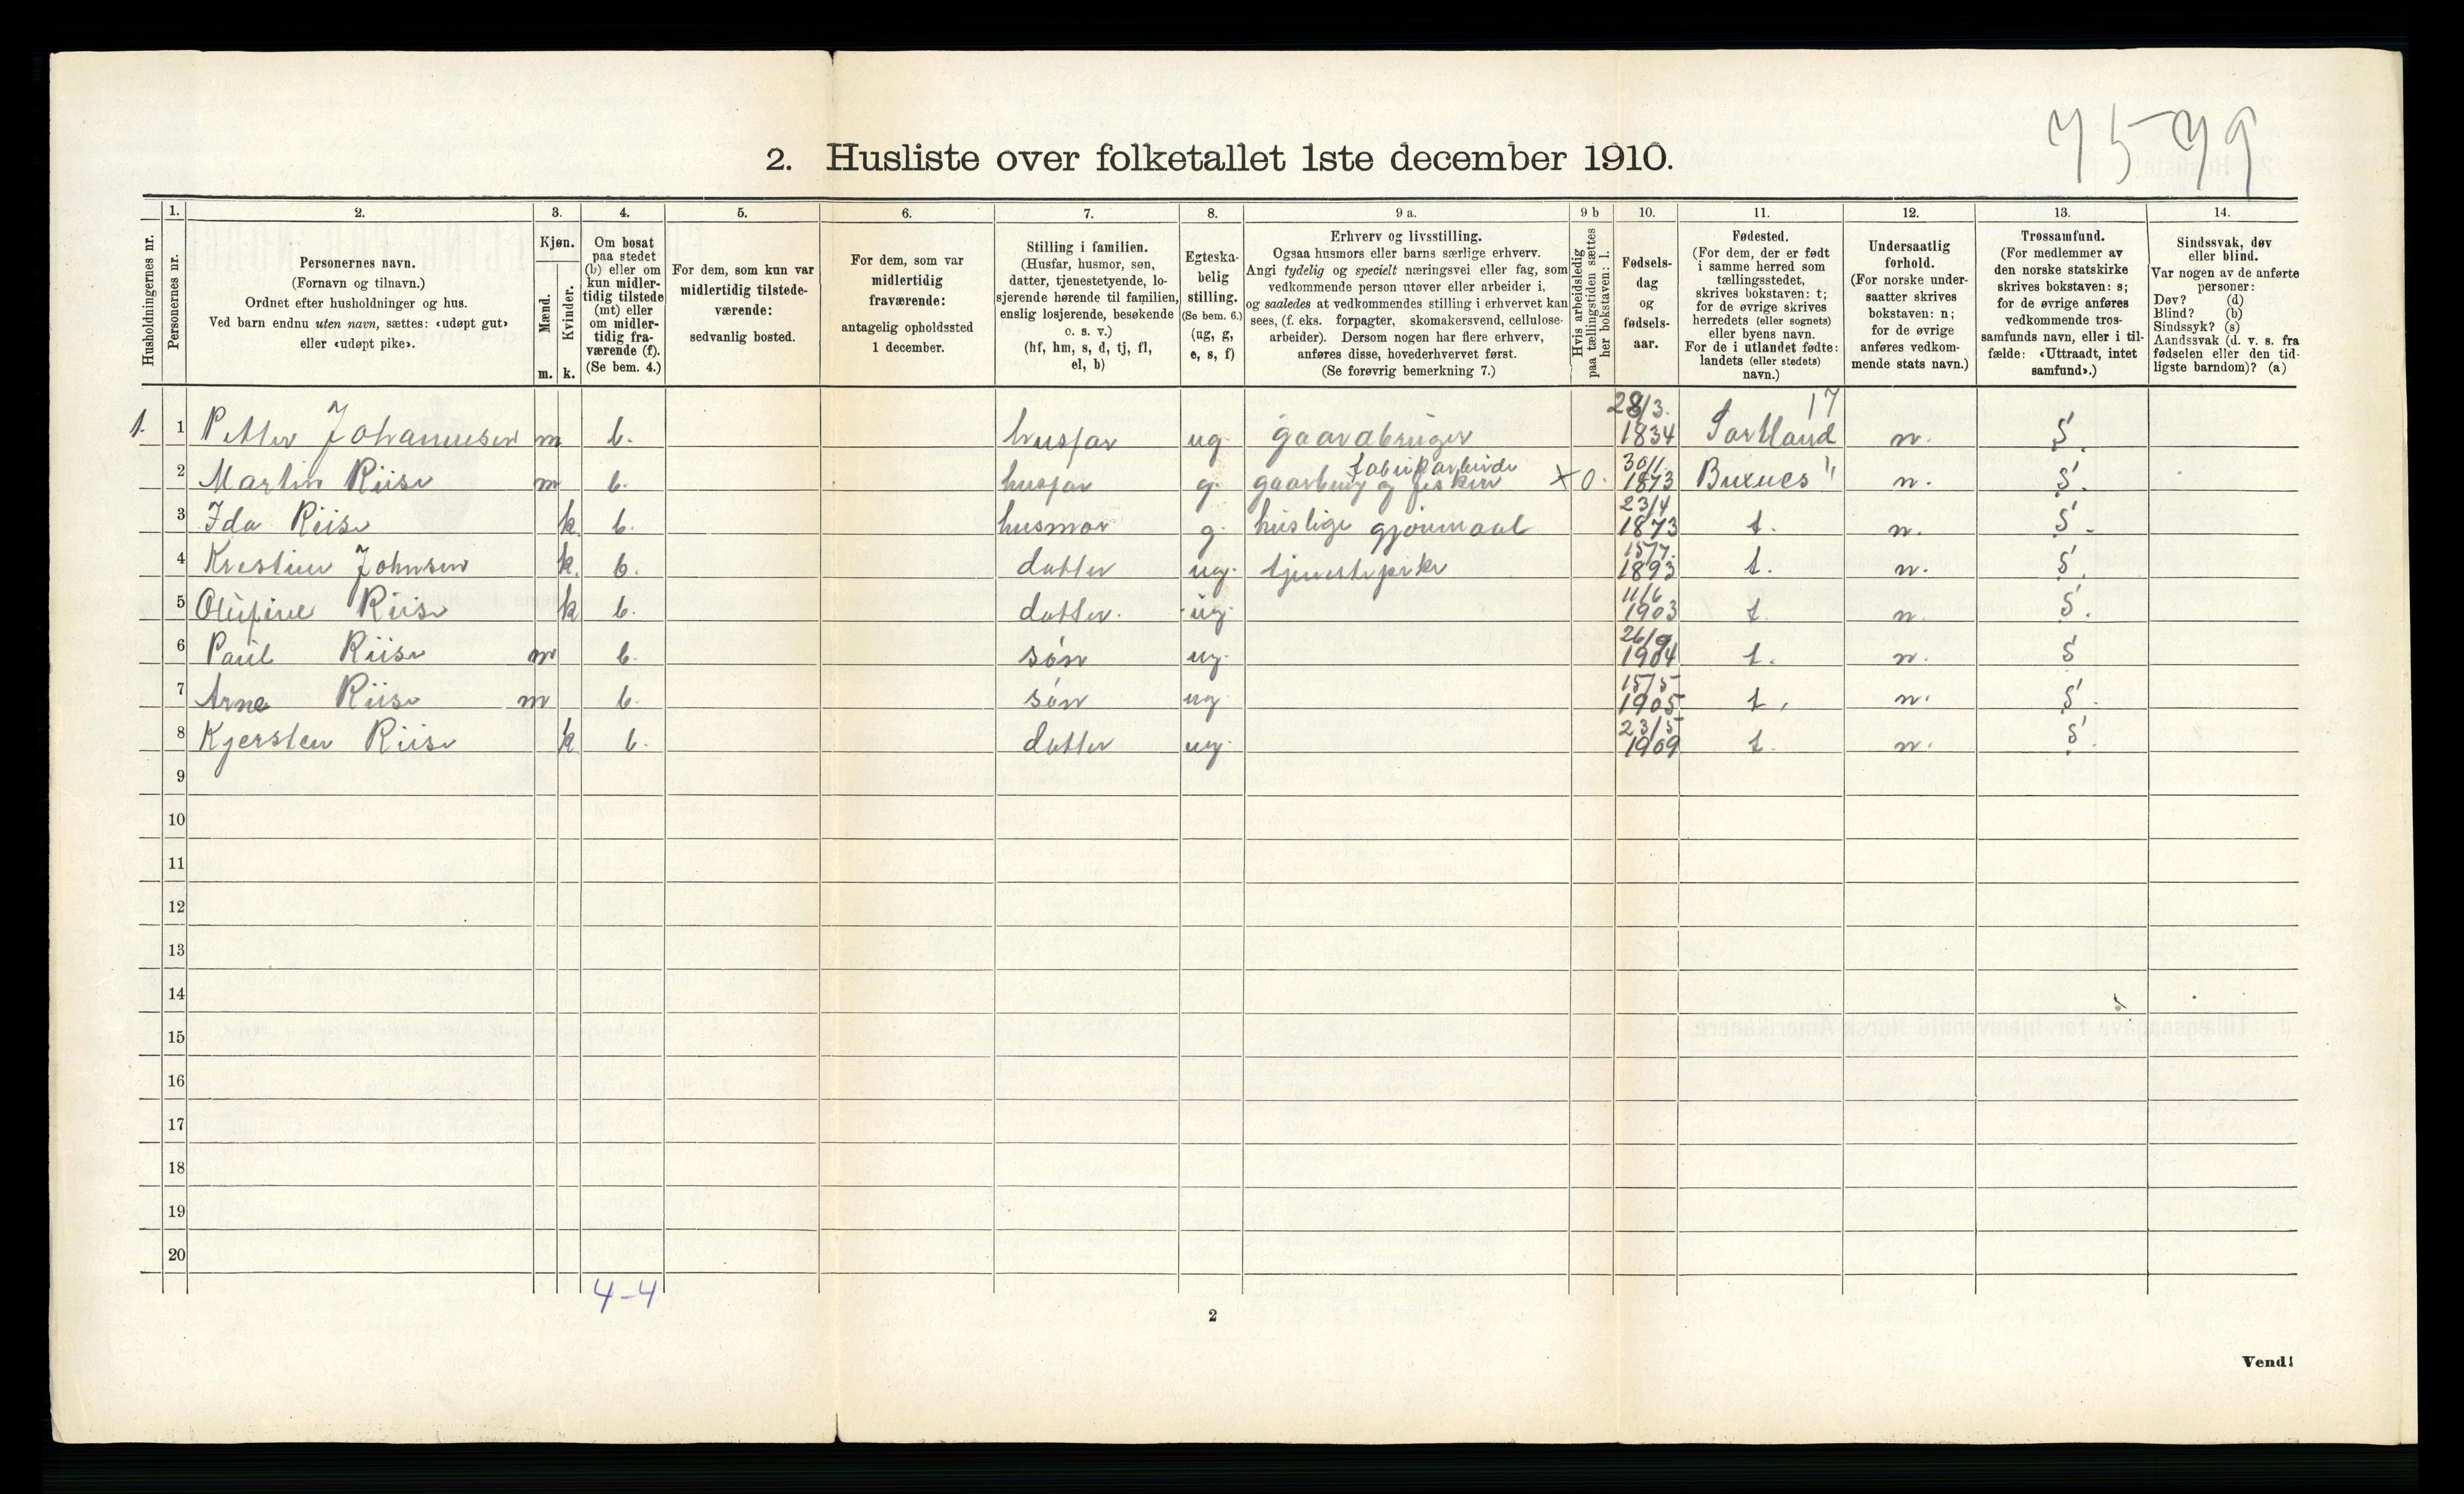 7599
2. Husliste over folketallet 1ste december 1910.
Husholdningernes nr.
1.
Personernes nr.
2.
Personernes navn.
(Fornavn og tilnavn.)
Ordnet efter husholdninger og hus.
Ved barn endnu uten navn, sættes: «udøpt gut»
eller «udøpt pike».
3.
Kjøn.
Mænd.
Kvinder.
m. k.
4.
Om bosat
paa stedet
(b) eller om
kun midler-
tidig tilstede
(mt) eller
om midler-
tidig fra-
værende (f).
(Se bem. 4.)
5.
For dem, som kun var
midlertidig tilstede-
værende:
sedvanlig bosted.
6.
For dem, som var
midlertidig
fraværende:
antagelig opholdssted
1 december.
7.
Stilling i familien.
(Husfar, husmor, søn,
datter, tjenestetyende, lo-
sjerende hørende til familien,
enslig losjerende, besøkende
o. s. v.)
(hf, hm, s, d, tj, fl,
el, b)
8.
Egteska-
belig
stilling.
(Se bem. 6.)
(ug, g,
e, s, f)
9 a.
Erhverv og livsstilling.
Ogsaa husmors eller barns særlige erhverv.
Angi tydelig og specielt næringsvei eller fag, som
vedkommende person utøver eller arbeider i,
og saaledes at vedkommendes stilling i erhvervet kan
sees, (f. eks. forpagter, skomakersvend, cellulose-
arbeider). Dersom nogen har flere erhverv,
anføres disse, hovederhvervet først.
(Se forøvrig bemerkning 7.)
9 b
Hvis arbeidsledig
paa tællingstiden sættes
(eller her bokstaven: l.
10.
Fødsels-
dag
og
fødsels-
aar.
11.
Fødested.
(For dem, der er født
i samme herred som
tællingsstedet,
skrives bokstaven: t;
for de øvrige skrives
herredets (eller sognets)
eller byens navn.
For de i utlandet fødte:
landets (eller stedets)
navn.)
12.
Undersaatlig
forhold.
(For norske under-
saatter skrives
bokstaven: n;
for de øvrige
anføres vedkom-
mende stats navn.)
13.
Trossamfund.
(For medlemmer av
den norske statskirke
skrives bokstaven: s;
for de øvrige anføres
vedkommende tros-
samfunds navn, eller i til-
fælde: «Uttraadt, intet
samfund».)
14.
Sindssvak, døv
eller blind.
Var nogen av de anførte
personer:
Døv? (d)
Blind? (b)
Sindssyk? (s)
Aandssvak (d. v. s. fra
fødselen eller den tid-
ligste barndom)? (a)
1. 1 Petter Johannesen m b. husfar ug. gaardbruger 28/3. 1834 Sortland 17 n. S.
2 Martin Riise m b. husfar g. gaardbrug og fisker fabrikarbeide X 0. 30/1. 1873 Buxnes " n. S.
3 Ida Riise k b. husmor g. huslige gjøremaal 23/4 1873 t. n. S.
4 Krestine Johnsen k. b. datter ug. tjenestepike 15/7. 1893 t. n. S.
5 Olufine Riise k b. datter. ug. 11/6 1903 t. n. S.
6 Paul Riise m b. søn ug. 26/9 1904 t. n. S
7 Arne Riise m b. søn ug 15/5 1905 t. n. S.
8 Kjersten Riise k b. datter ug. 23/5 1909 t. n. S.
9
10
11
12
13
14
15
16
17
18
19
20
4-4
2
Vend!